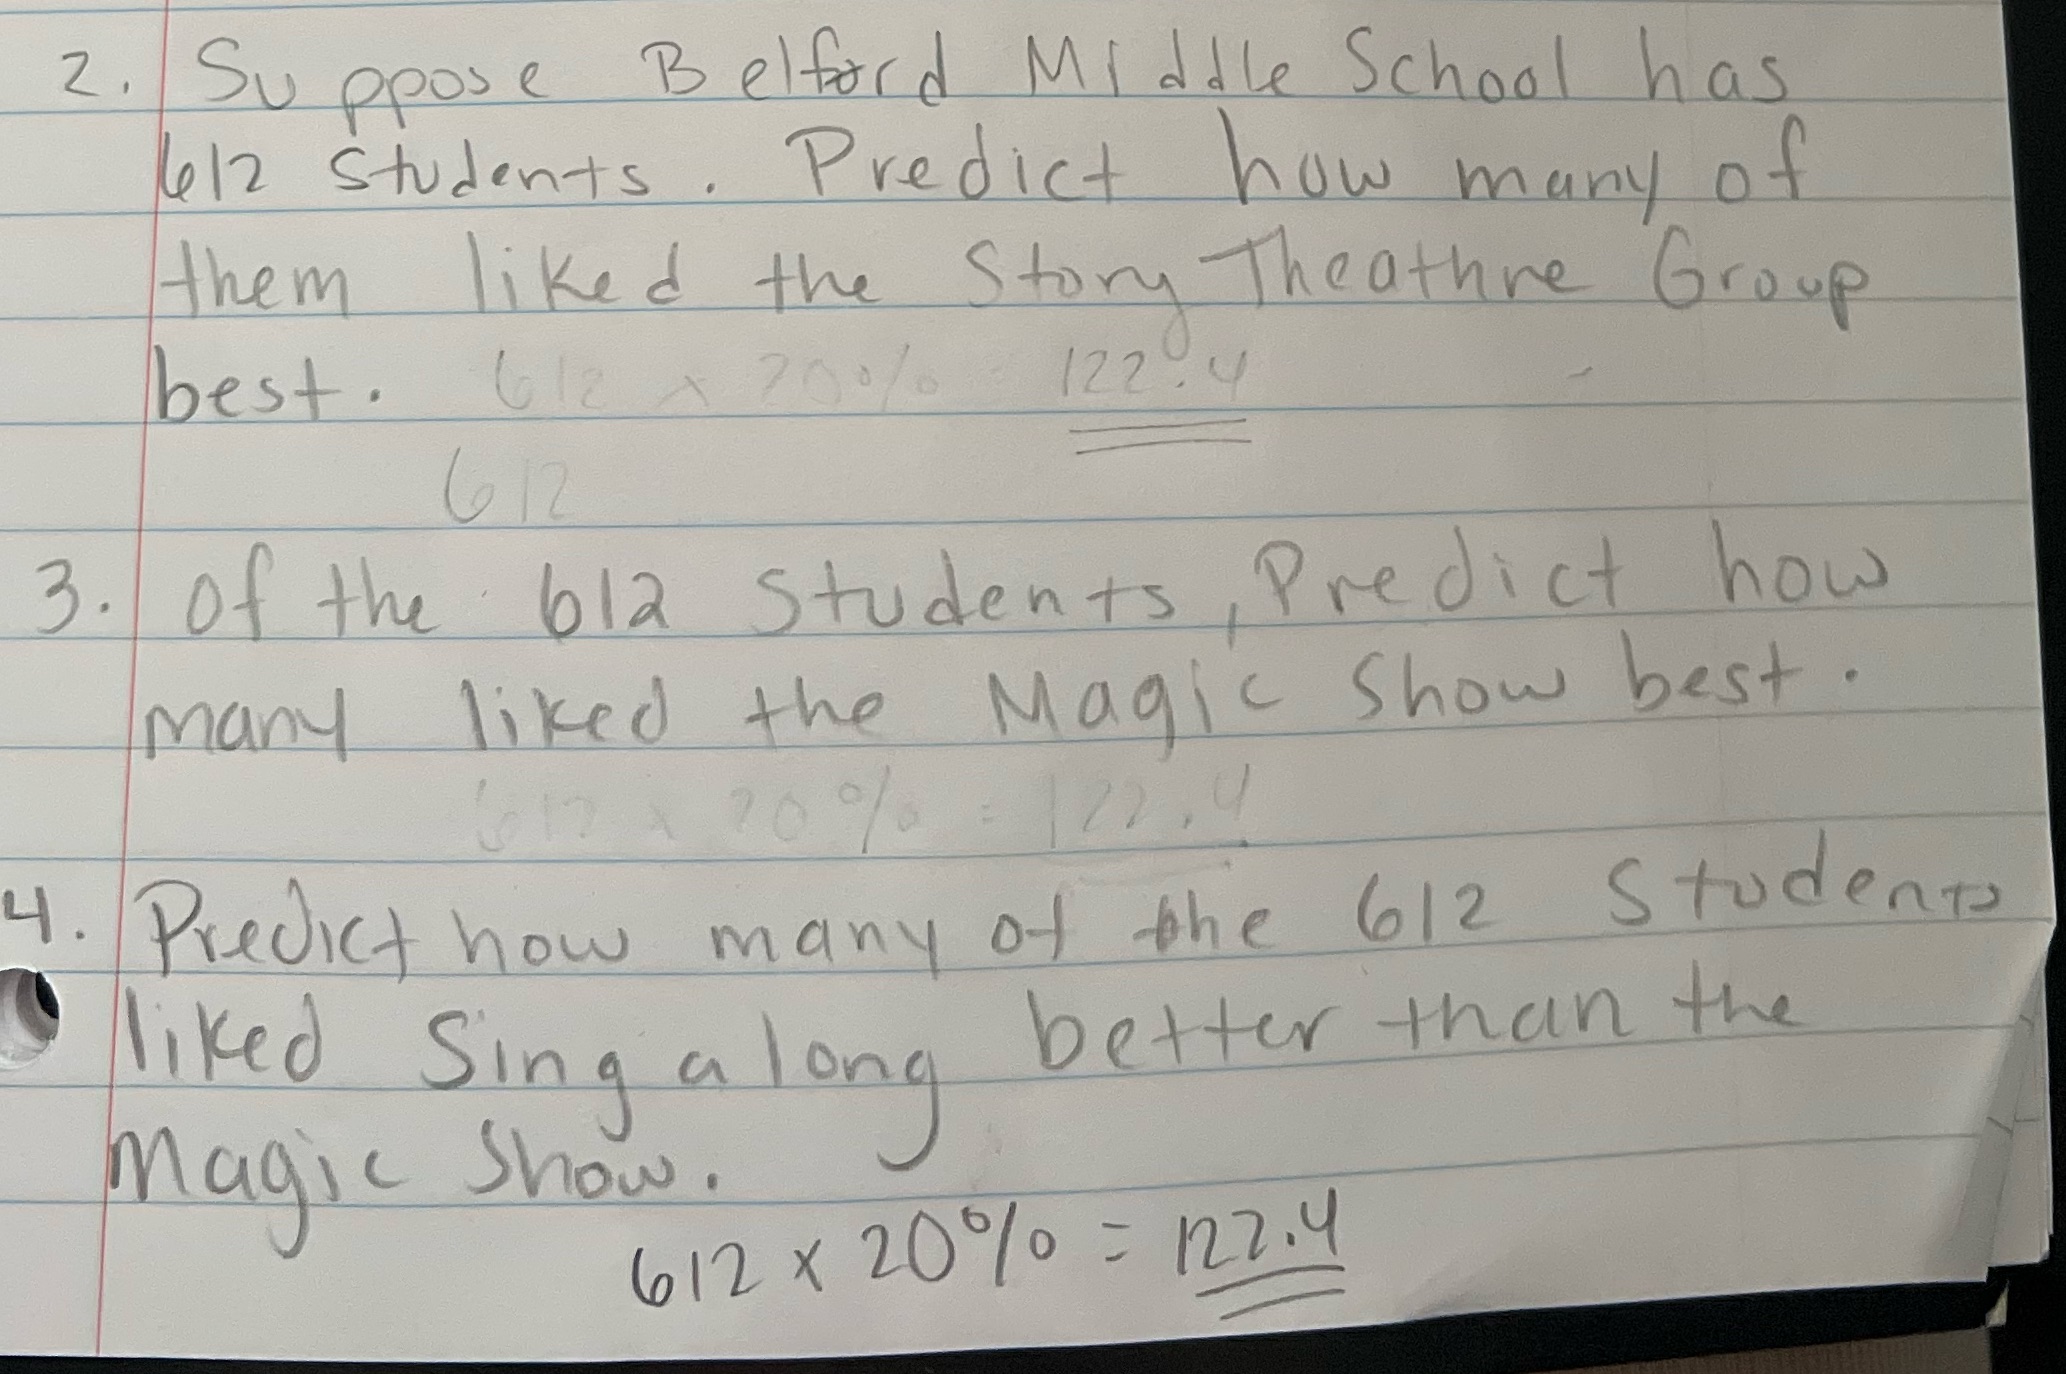 2. Suppose Belford Middle School has
612 Students. Predict how many of
them liked the Story Theathre Group
best. 612 x 20% = 122.4
612
3. Of the 612 Students, Predict how
many liked the Magic Show best.
612 x 20% = 122.4
4. Predict how many of the 612 Students
liked Sing along better than the
Magic Show.
612 x 20% = 122.4